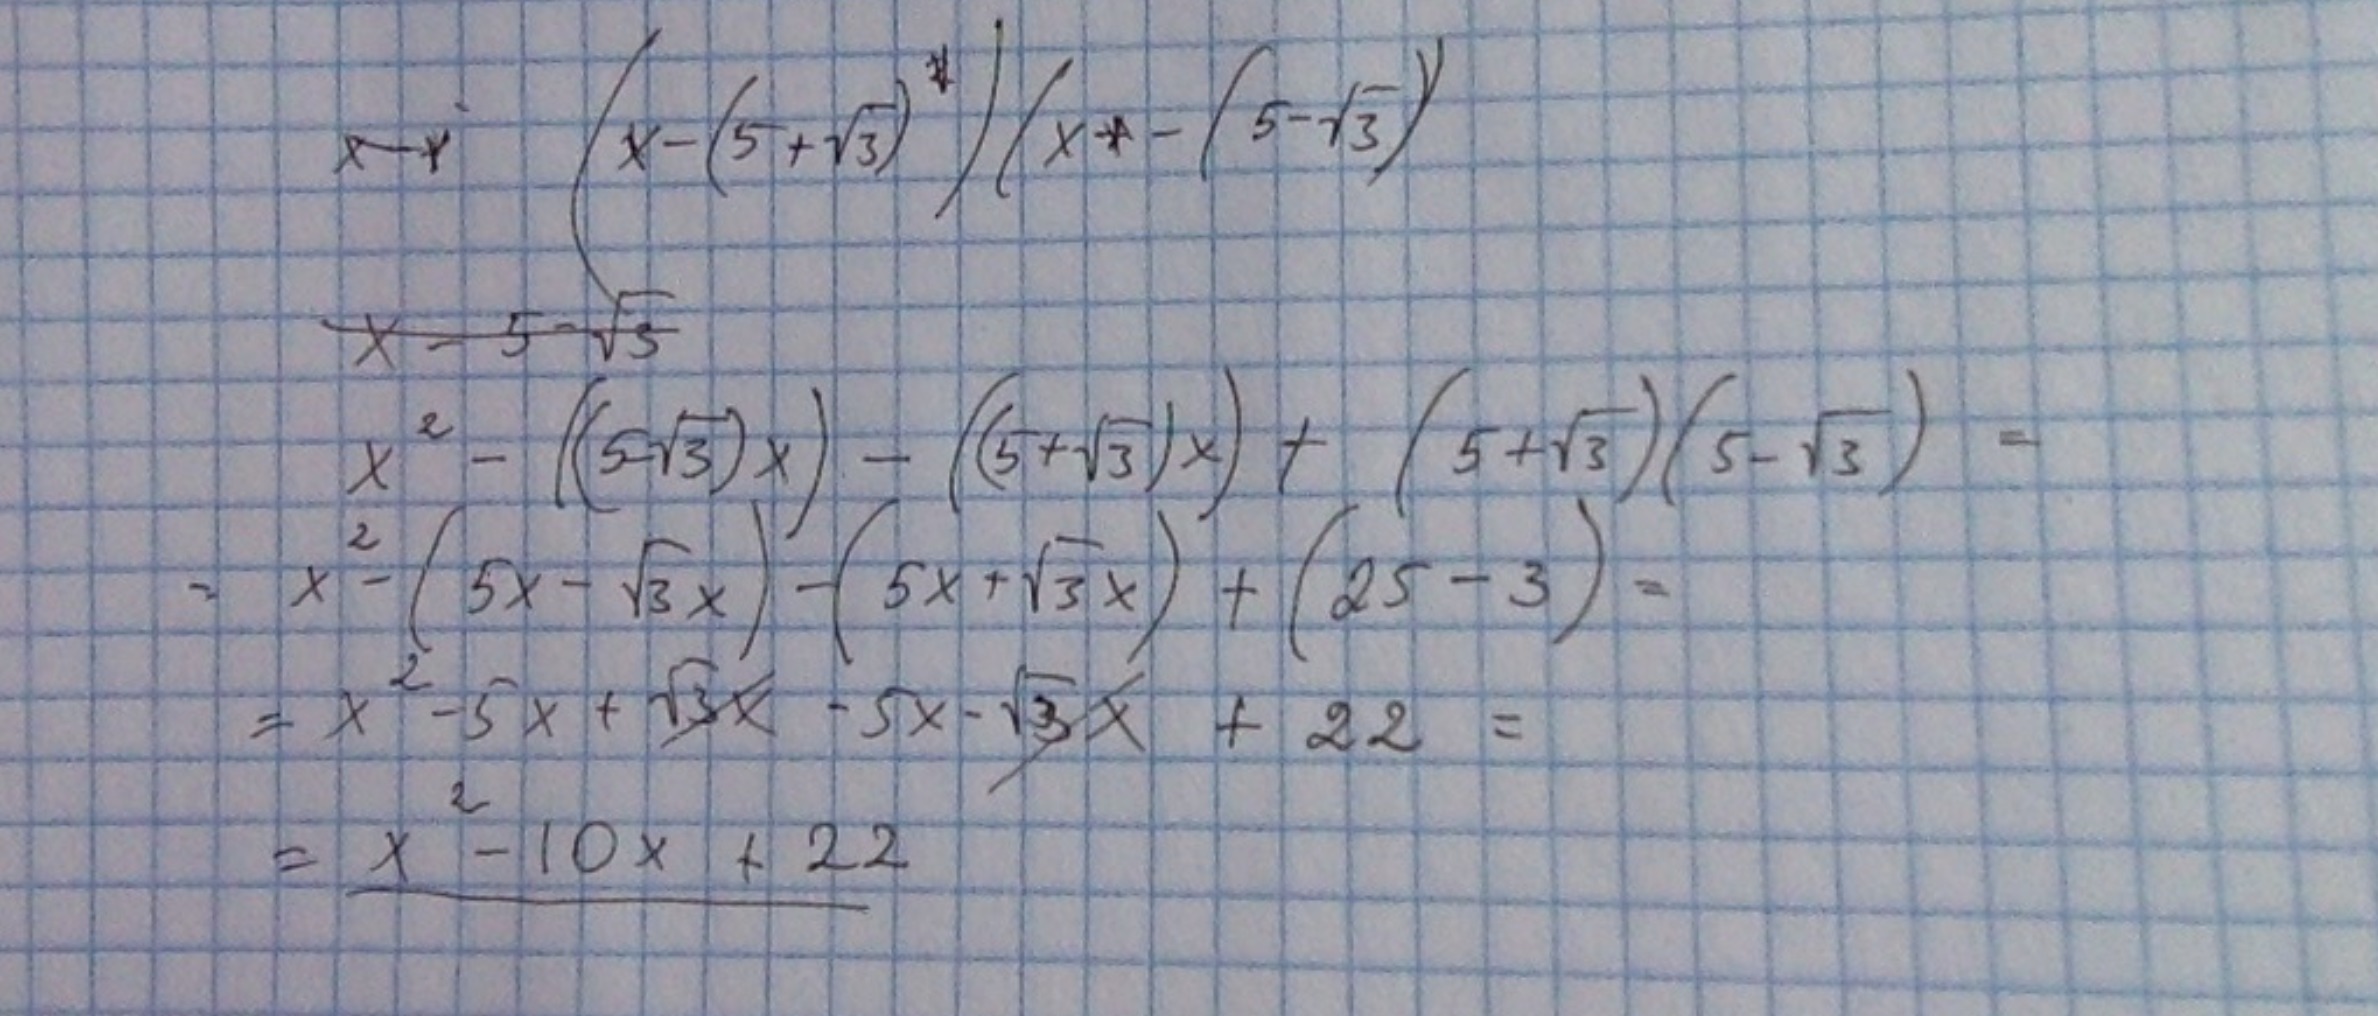 (x-(5+√3))(x-(5-√3))
x-5-√3
x²-((5-√3)x)-((5+√3)x)+(5+√3)(5-√3)=
=x²-(5x-√3x)-(5x+√3x)+(25-3)=
=x²-5x+√3x-5x-√3x+22=
=x²-10x+22